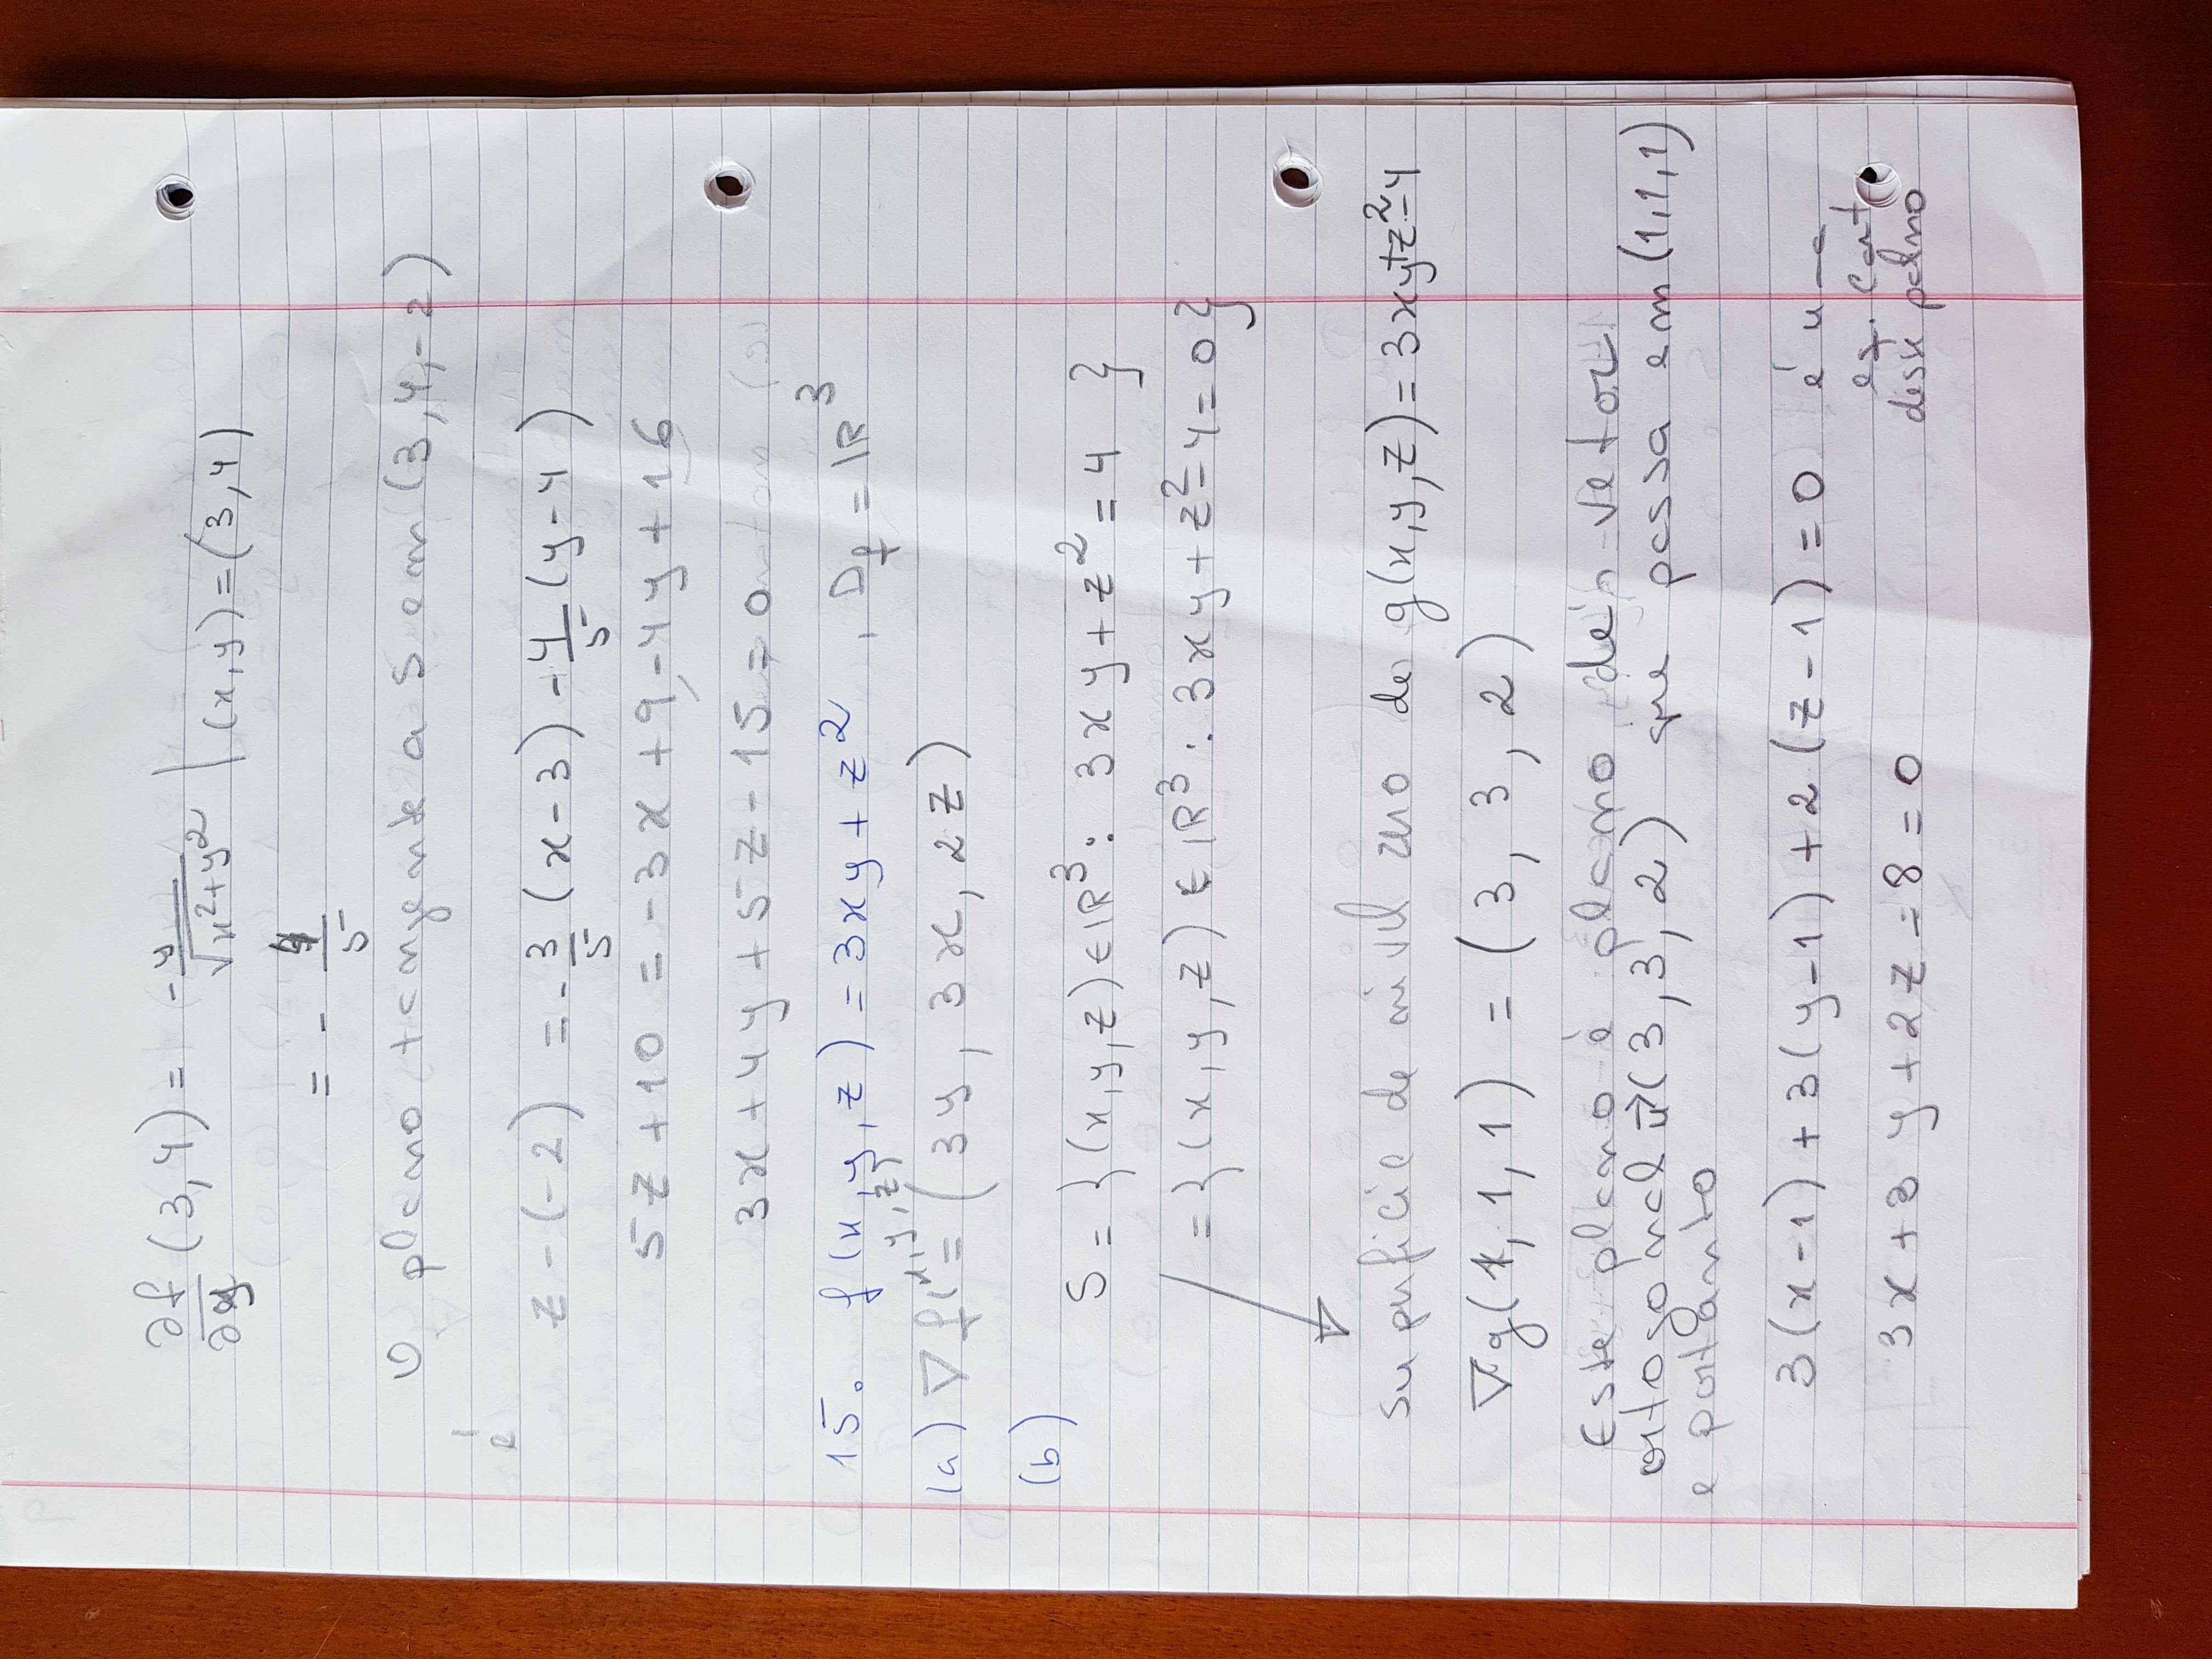 ∂f/∂y (3,4) = -y/√(x²+y²) | (x,y)=(3,4)
= - 4/5
O plano tangente a S em (3,4,-2)
é
z-(-2) = -3/5 (x-3) -4/5 (y-4)
5z+10 = -3x+9-4y+16
3x+4y+5z-15=0
15. f(x,y,z)=3xy+z² , Df = IR³
(a) ∇f(x,y,z) = (3y, 3x, 2z)
(b)
S = {(x,y,z)∈IR³: 3xy+z²=4 }
= {(x,y,z) ∈ IR³ : 3xy+z²-4=0}
superfície de nível zero de g(x,y,z)=3xy+z²-4
∇g(1,1,1) = (3, 3, 2)
Este plano é plano de vetor
ortogonal u⃗(3,3,2) que passa em (1,1,1)
e portanto
3(x-1)+3(y-1)+2(z-1)=0 é uma
eq. cart
desse palno
3x+3y+2z=8=0